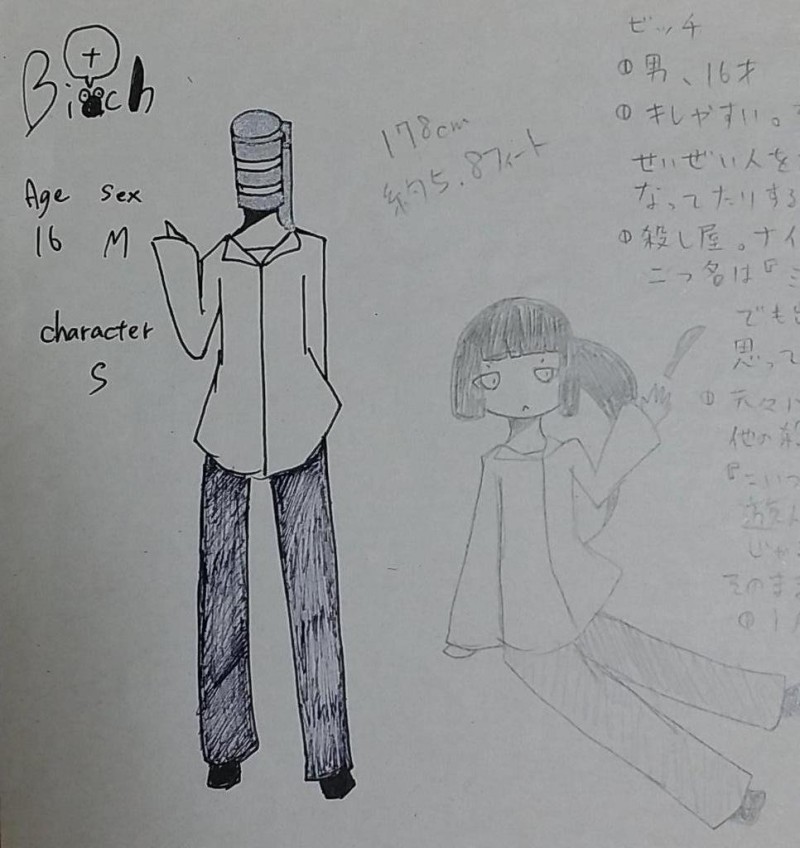 +
Bitch
Age Sex
16 M
character
S
178cm
約5.8フィート
ビッチ
①男、16才
①キレやすい。
せいぜい人を
なってたりする
①殺し屋。ナイ
二つ名は『ミ
でも
思って
①元々
他の殺
『こいつ
じゃ
そのまま
①1人